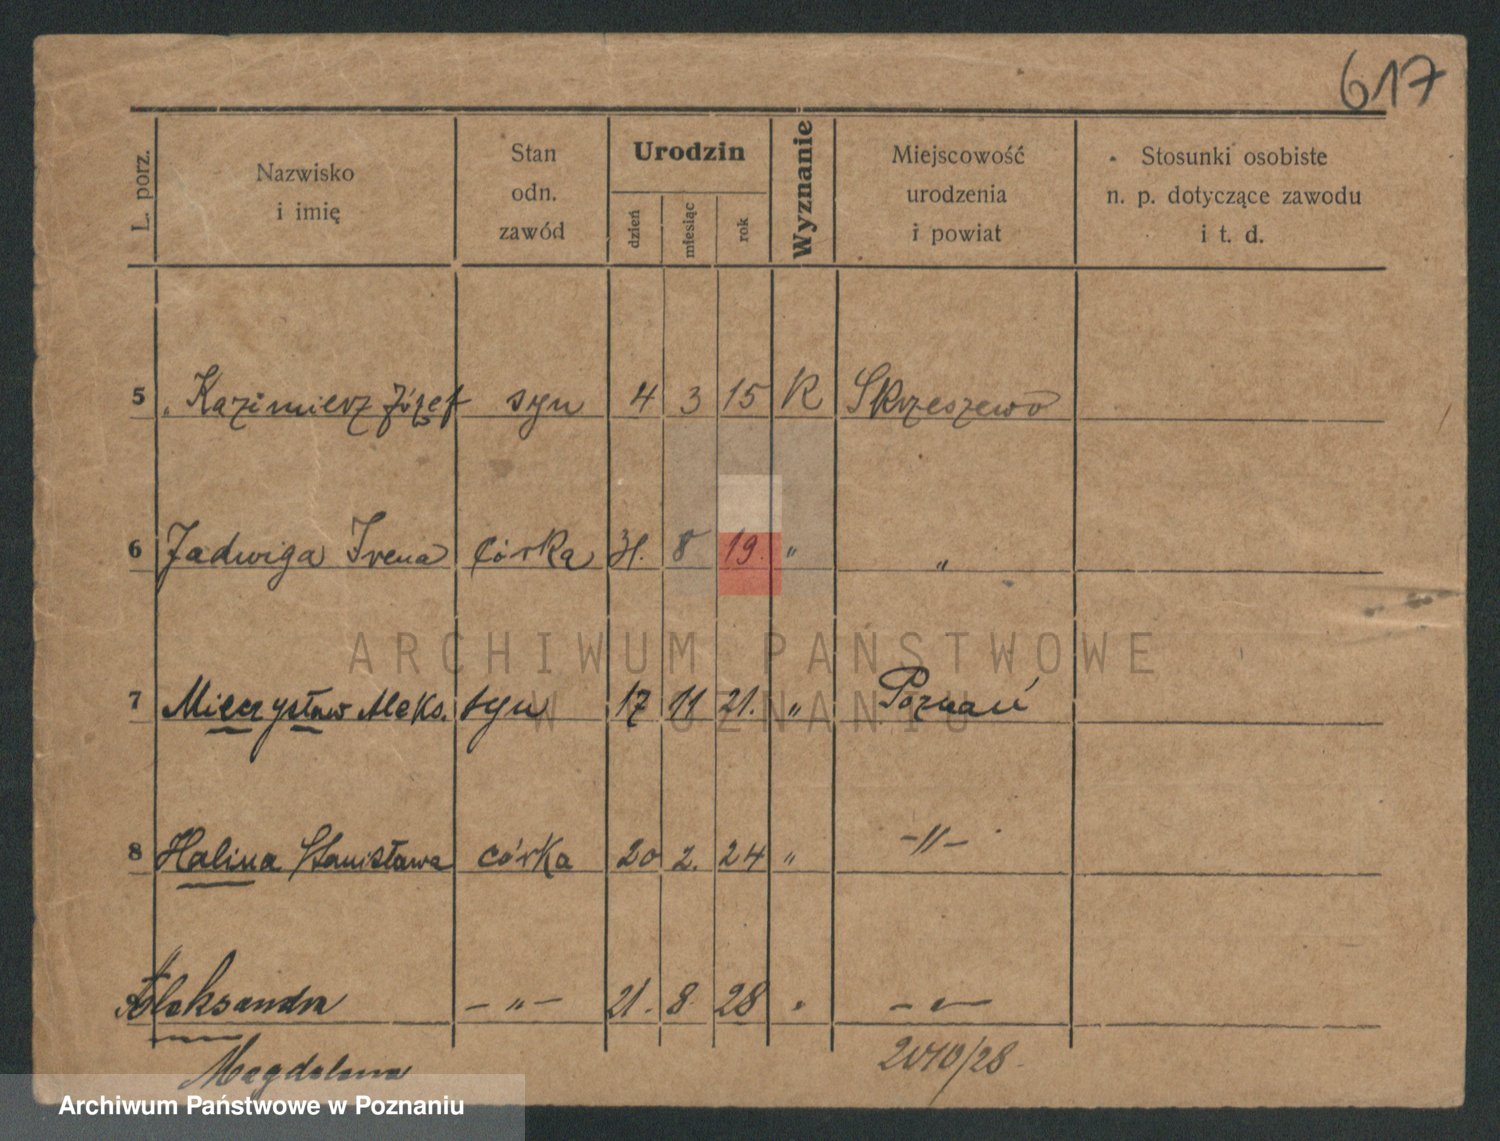 617
L. porz.
Nazwisko
i imię
Stan
odn.
zawód
Urodzin
dzień
miesiąc
rok
Wyznanie
Miejscowość
urodzenia
i powiat
Stosunki osobiste
n. p. dotyczące zawodu
i t. d.
5 Kazimierz Józef syn 4 3 15 R Skrzeszewo
6 Jadwiga Irena córka 31. 8 19. " "
ARCHIWUM PAŃSTWOWE
7 Mieczysław Aleks. syn 17 11 21. " Poznań
W POZNANIU
8 Halina Stanisława córka 20 2. 24 " -"-
Aleksandra -"- 21. 8 28 " -"-
Magdalena
Archiwum Państwowe w Poznaniu